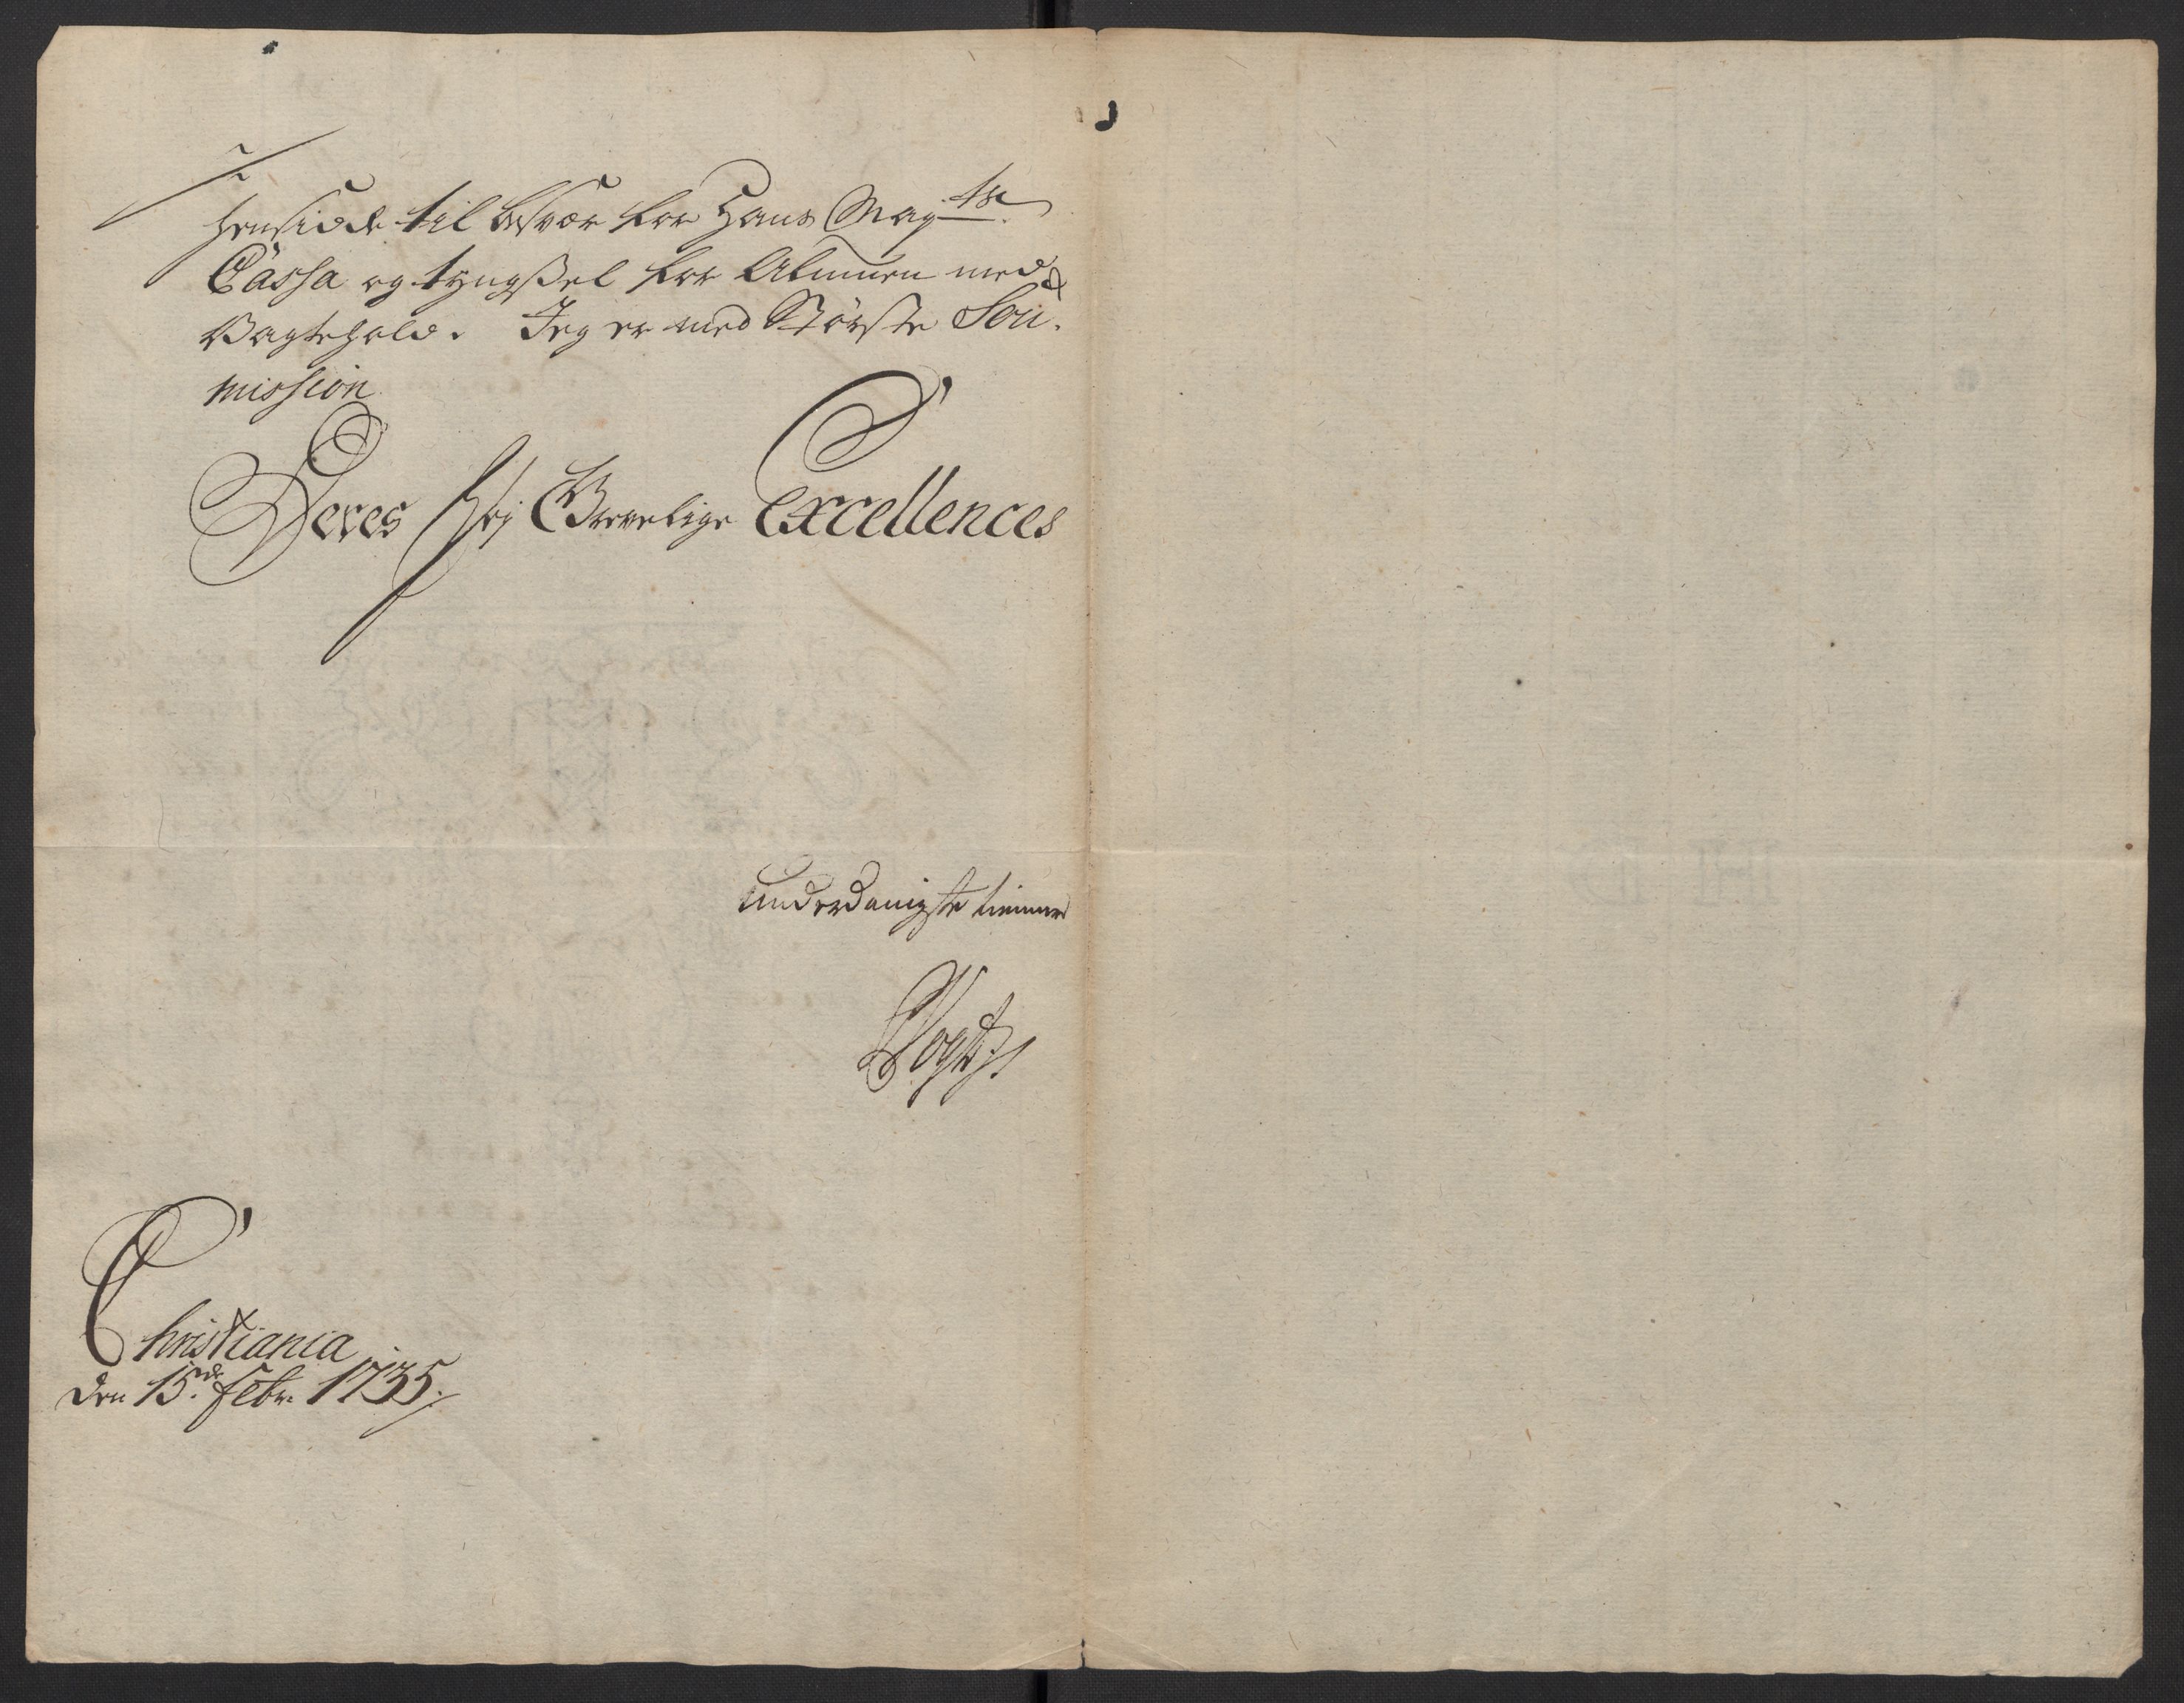 hensidde til besvær for Hans May:ts
Cassa og tyngsel for Almuen med
Vagtehold. Jeg er med Største Sou-
mission
Deres Høj Grevelige Excellences
underdanigste tienner
Christiania
den 15de Febr. 1735.